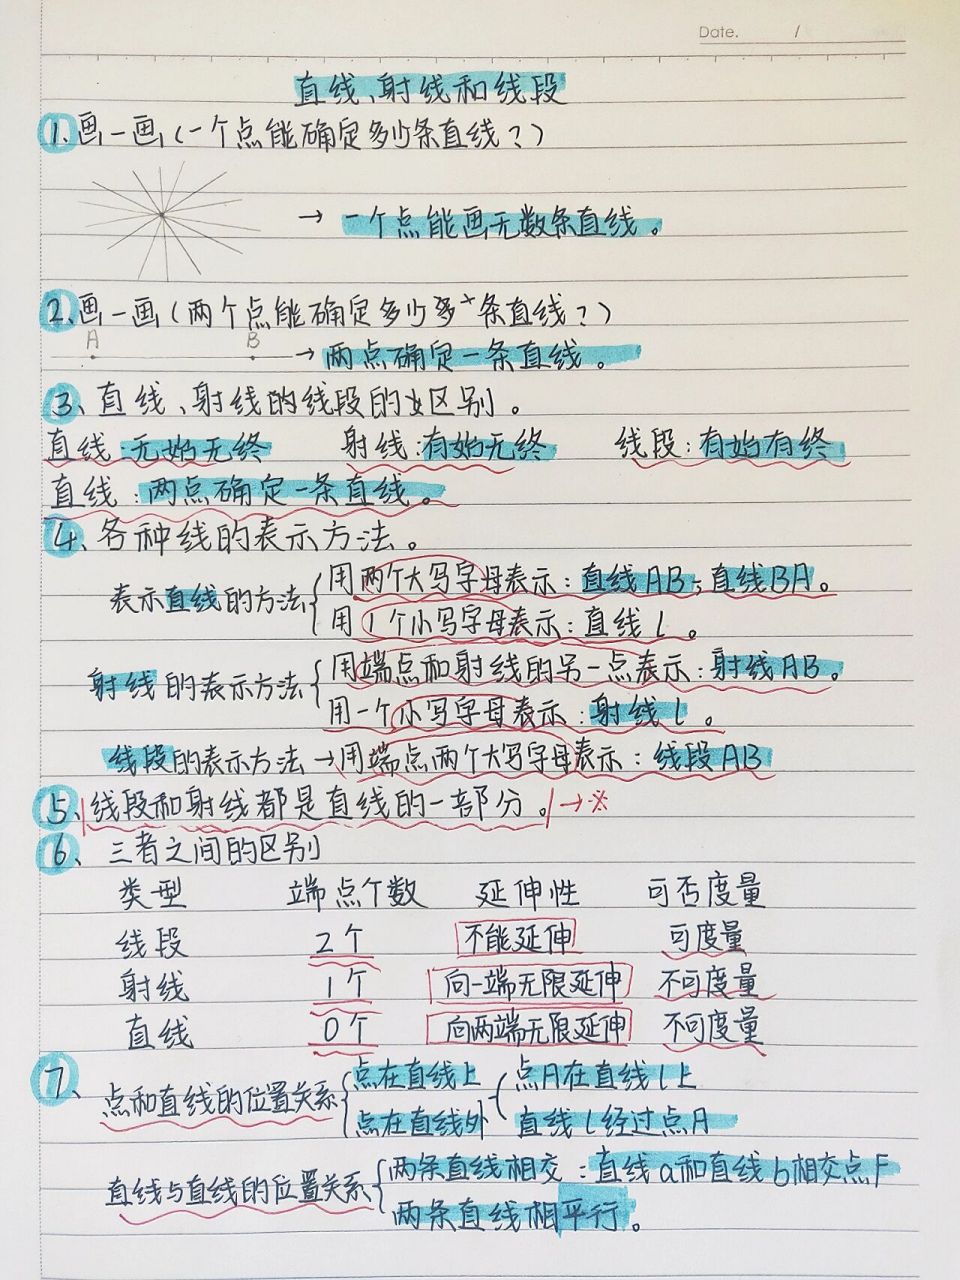 Date. /
直线、射线和线段
1、画一画(一个点能确定多少条直线?)
→ 一个点能画无数条直线。
2、画一画(两个点能确定多少条直线?)
A B → 两点确定一条直线。
3、直线、射线的线段的区别。
直线:无始无终 射线:有始无终 线段:有始有终
直线:两点确定一条直线。
4、各种线的表示方法。
用两个大写字母表示:直线AB;直线BA。
表示直线的方法
用1个小写字母表示:直线l。
用端点和射线的另一点表示:射线AB。
射线的表示方法
用一个小写字母表示:射线l。
线段的表示方法→用端点两个大写字母表示:线段AB
5、线段和射线都是直线的一部分。→※
6、三者之间的区别
类型 端点个数 延伸性 可否度量
线段 2个 不能延伸 可度量
射线 1个 向一端无限延伸 不可度量
直线 0个 向两端无限延伸 不可度量
7、
点在直线上 点A在直线l上
点和直线的位置关系
点在直线外 直线l经过点A
两条直线相交:直线a和直线b相交点F
直线与直线的位置关系
两条直线相平行。